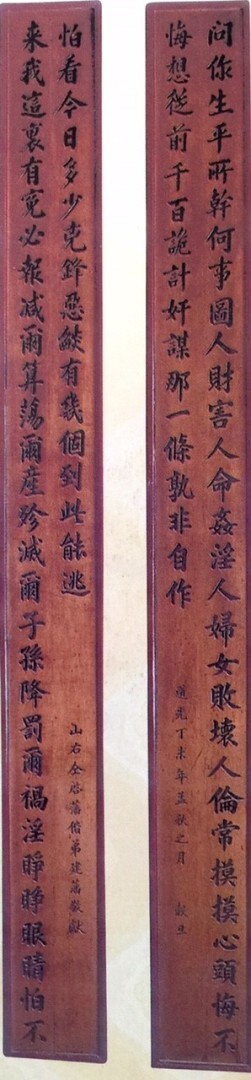 問你生平所幹何事圖人財害人命姦淫人婦女敗壞人倫常摸摸心頭悔不
悔想從前千百詭計奸謀那一條孰非自作
道光丁未年孟秋之月 穀旦
來我這裏有冤必報減爾算蕩爾產殄滅爾子孫降罰爾禍淫睜睜眼睛怕不
怕看今日多少兇鋒惡燄有幾個到此能逃
山右仝啓藩偕弟建藩敬獻